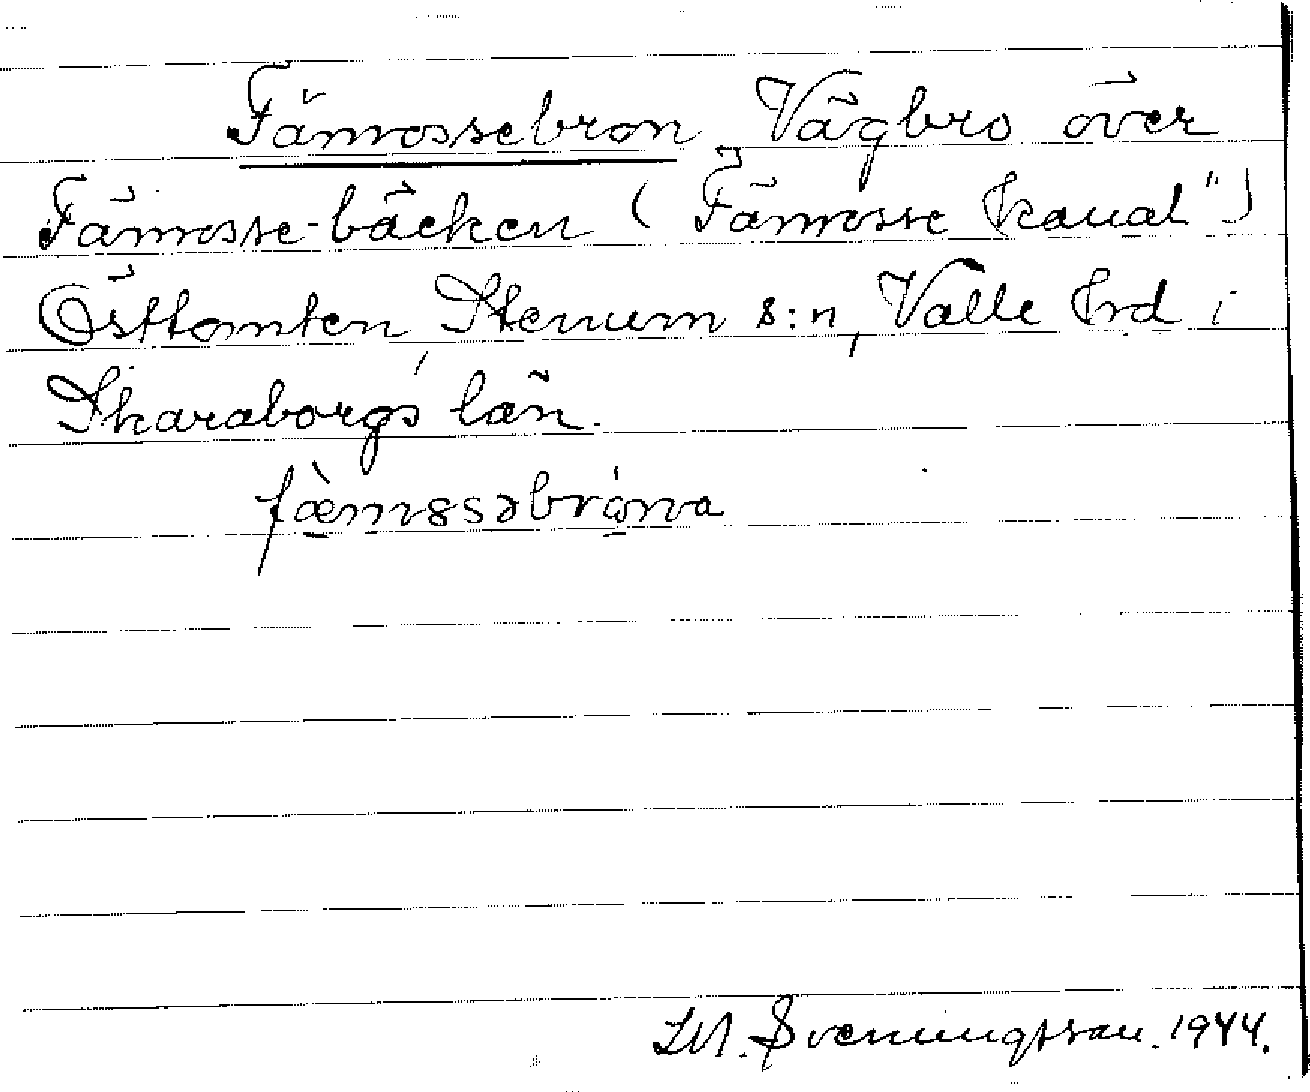 Fämossebron Vägbro över
Fämosse-bäcken ( "Fämosse kanal")
Östtomten, Stenum s:n, Valle hrd i
Skaraborgs län.
Svenungsson. 1944.